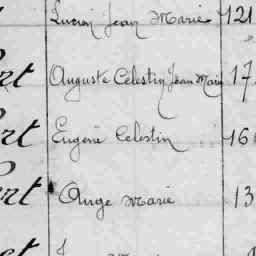 Lucien Jean Marie 121
Auguste Celestin Jean Marie 17
Eugène Celestin 16
Ange Marie 13